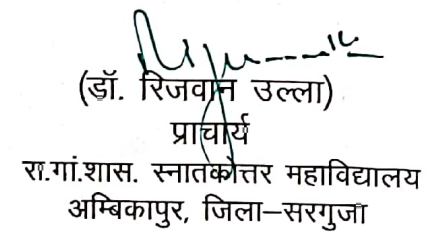 (डॉ. रिजवान उल्ला)
प्राचार्य
रा.गां.शास. स्नातकोत्तर महाविद्यालय
अम्बिकापुर, जिला–सरगुजा